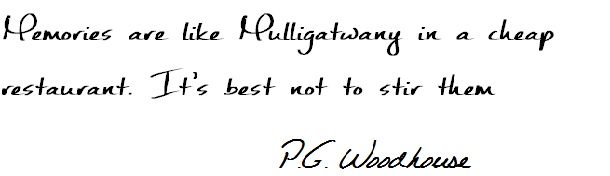 Memories are like Mulligatwany in a cheap
restaurant. It's best not to stir them
P.G. Woodhouse